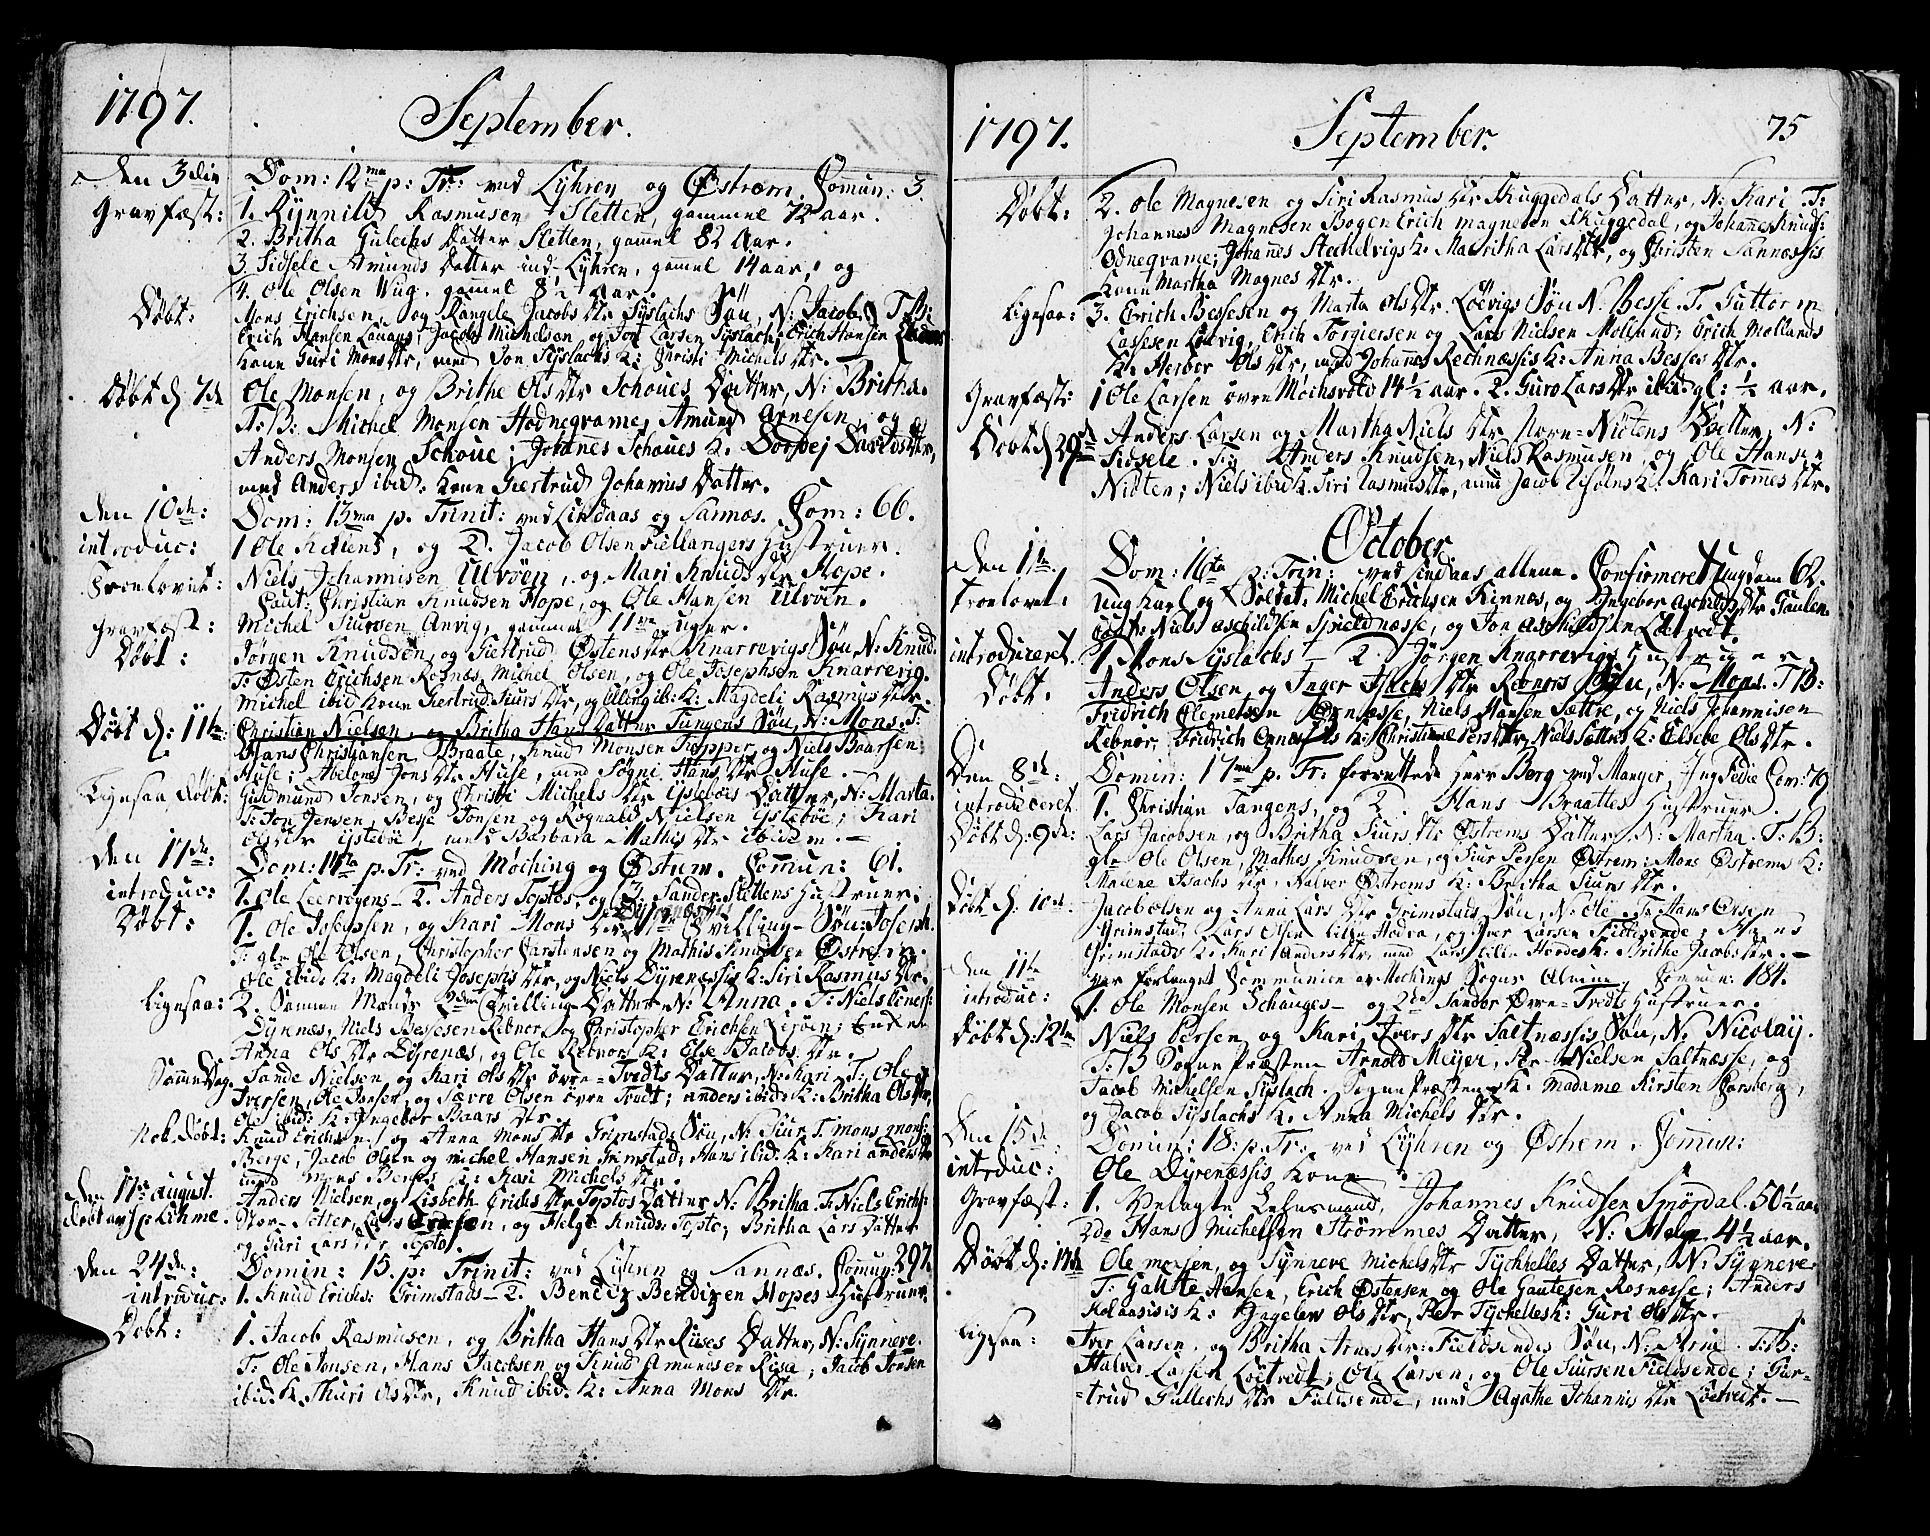 1797. September.
den 3die Dom: 12ma p: Tr: ved Lyhren og Østrem. Comun: 3.
Gravfæst: 1. Rynnild Rasmusen Sletten, gammel 72 aar.
2. Britha Gulechs Datter Sletten, gamel 82 Aar.
3. Sidsele Amunds Datter ind-Lyhren, gamel 14 aar, og
4. Ole Olsen Wug. gamel 8½ Aar.
Døbt: Mons Erichsen, og Rangele Jacobs Dtr Syslachs Søn, N: Jacob. T: B:
Erich Hansen Jacob Michelsen og Jon Larsen Syslach; Erich Hansen
Kone Guri Mons Dtr, med Jon Syslachs K: Christi Michels Dtr.
Døbt d: 7de Ole Monsen, og Brithe Ols Dtr Schoues Datter, N: Britha.
T: B: Michel Monsen Hodnegvame, Amund Arnesen, og
Anders Monsen Schoue; Johanes Schoues K: Dordej Davids Dtr,
med Anders ibid: Kone Giertrud Johannis Datter.
Den 10de: Dom: 13ma p. Trinit: ved Lindaas og Sannæs. Com: 66.
introduc: 1 Ole og 2. Jacob Olsen Fiellangers Hustruer.
Troelovet: Niels Johannisen Ulvøen, og Mari Knuds Dtr Hope.
Caut: Christian Knudsen Hope, og Ole Hansen Ulvøen.
gravfæst: Michel Siursen Anvig, gammel 11 uger.
Døbt: Jørgen Knudsen, og Giertrud Østens Dtr Knarrevigs Søn N: Knud.
T: Østen Erichsen Rosnes, Michel Olsen, og Ole Josephsen Knarrevig.
Michel ibid Kone Giertrud Siurs Dtr, og Elling ib: K: Magdeli Rasmus Dtr.
Døbt d: 11te: Christian Nielsen, og Britha Hans Datter Tangens Søn, N: Mons. T:
Hans Christiansen Braate, Knud Monsen og Niels Baarsen
Huse; Abelone Jons Dtr Huse, med Søgni Hans Dtr Huse.
Ligesaa Døbt: Gudmund Jensen, og Christi Michels Dtr Ystebøes Datter, N: Marta.
T: Jon Jensen, Besse Jonsen og Rognald Nielsen Ystebøe; Kari
Dtr Ystebøe, med Barbara Mathis Dtr ibidem.
Den 17de: Dom: 14ta p. Tr: ved Møching og Østrem. Comun: 61.
introduc: 1. Ole Leervogens - 2. Anders Toptos, og 3. Sander Slettens Hustruer;
Døbt: 1. Ole Josephsen, og Kari Mons Dtr Dyrenæssis 1te Tvilling-Søn: Joseph.
T: gle Ole Olsen, Christopher Carstensen og Mathis Knudsen Østrem.
Ole ibid: K: Magdeli Josephs Dtr, og Niels Dyrenæssis K: Siri Rasmus Dtr.
Ligesaa: 2. Samme Mands 2den Tvilling-Datter N: Anna. T: Niels
Dyrnæs, Niels Bessesen Rebnor, og Christopher Erichsen
Anna Ols Dtr Dyrenæs, og Ole Rebnors K: Else Jacobs Dtr.
Samme Dag. Sande Nielsen, og Kari Ols Dtr øvre-Tvedts Datter, N: Kari. T: Ole
Iversen, Ole Jonsen, og Sævre Olsen øvre Tvedt; anders ibid: K: Britha Ols Dtr,
Ole ibid: K: Ingebor Baars Dtr.
Nok Døbt: Knud Erichsen, og Anna Mons Dtr Grimstads Søn, N: Siur. T: Mons Mons:
Berge, Jacob Olsen og Michel Hansen Grimstad; Hans ibid: K: Kari Anders Dtr
med Mons Berges K: Kari Michels Dtr.
den 17de august. Anders Nielsen, og Lisbeth Erichs Dtr Toptos Datter N: Britha. T: Niels Erichs:
døbt av Hr: Kihme. Lars Erichsen, og Helge Knuds: Topto; Britha Lars Datter
og Guri Lars Dtr Topto.
den 24de: Domin: 15. p: Trinit: ved Lyhren og Sannæs. Comun: 297.
introduc: 1. Knud Erichs: Grimstads - 2. Bendix Bendixen Hopes Hustruer.
Døbt: 1. Jacob Rasmusen, og Britha Hans Dtr Rises Datter, N: Synneve.
T: Ole Jonsen, Hans Jacobsen og Knud Amundsen Risa; Jacob Jonsen
ibid: K: Thuri Ols Dtr, Knud ibid: K: Anna Mons Dtr.
1797. September. 75
Døbt: 2. Ole Magnesen og Siri Rasmus Dtr Skuggedals Datter, N: Kari. T:
Johannes Magnesen Bogen Erich Magnesen Skuggedal, og Johannes Knuds:
Odnegvame; Johanes Stechelvigs K: Mauritha Lars Dtr, og Christen Sannæssis
Kone Martha Magnes Dtr.
Ligesaa: 3. Erich Bessesen og Marta Ols Dtr Løevigs Søn N: Besse. T: Guttorm
Lassesen Løevig, Erich Torgiersen og Lars Nielsen Molland; Erich Mollands
K: Herbor Ols Dtr, med Johanes Rechnæssis K: Anna Besses Dtr.
Gravfæst: 1 Ole Larsen øvre Mochsvold 14½ aar. 2. Guro Lars Dtr ibid gl: ½ aar.
Døbt d: 29de Anders Larsen og Martha Niels Dtr Nore-Niøtens Datter, N:
Sidsele. T: Anders Knudsen, Niels Rasmusen og Ole Hansen
Niøten; Niels ibid K: Siri Rasmus Dtr, med Jacob K: Kari Tomes Dtr.
October
Den 1te. Dom: 16ta p: Trin: ved Lindaas allene. Confirmeret Ungdom 62.
Troelovet. Ung Karl og Soldat: Michel Erichsen Kinnæs, og Ingebor Aschilds Dtr Gaulen
Caut: Niels Aschildsen Spieldnæsse, og Jon Aschildsen Løtvedt.
introduceret. 1. Mons Syslachs - 2. Jørgen Knarrevigs Hustruer.
Døbt. Anders Olsen, og Inger Isachs Dtr Rebnors Søn, N: Mons. T: B:
Fridrich Clemetsen Ornæsse, Niels Hansen Sættre, og Niels Johannisen
Rebnor, Fridrich Ornæssis K: Christiane Pers Dtr, Niels Sættres K: Elsebe Ols Dtr.
Den 8de: Domin: 17ma p. Tr: forrettede Herr Berg ved Manger, Ing Com: 79
introduceret 1. Christian Tangens, og 2. Hans Braattes Hustruer.
Døbt d: 9de: Lars Jacobsen, og Britha Siurs Dtr Østrems Datter, N: Martha. T: B:
gle Ole Olsen, Mathes Knudsen, og Siur Persen Østrem: Mons Østrems K:
Malene Isachs Dtr, Halver Østrems K: Britha Siurs Dtr.
Døbt d: 10de. Jacob Olsen og Anna Lars Dtr Grimstads Søn, N: Ole. T: Hans Olsen
Grimstad, Lars Olsen lille Hodra, og Iver Larsen Fieldsende; Hans
Grimstads K: Kari Anders Dtr med Lars lille Hordes K: Brithe Jacobs Dtr.
den 11te var forlanget Communien av Mochings Sogns Almue. Comun: 184.
introduc: 1. Ole Monsen Schauges - og 2de Sander Øvre-Tvedts Hustruer.
Døbt d: 12te Niels Persen og Kari Ivers Dtr Saltnæssis Søn, N: Nicolaÿ.
T: B: Sogne Præsten Arnold Meÿer, Per Nielsen Saltnæsse, og
Jacob Michelsen Syslach. Sogne Præstens K: Madame Kirsten Garsberg,
og Jacob Syslachs K: Anna Michels Dtr.
Den 15de: Domin: 18: p. Tr: ved Lyhren og Østrem. Comun:
introduc: Ole Dyrenæssis Kone.
Gravfæst: 1. Velagte Lehnsmand, Johannes Knudsen Smørdal. 50½ aar
2do Hans Michelsen Strømmes Datter, N: 4½ aar.
Døbt d: 17de Ole Monsen, og Synneve Michels Dtr Tychhelles Datter, N: Synneve
T: Gautte Hansen, Erich Østensen og Ole Gautesen Rosnæsse; Anders
Kolaasisis K: Ingelev Ols Dtr, Per Tychelles K: Guri Ols Dtr.
ligesaa: Iver Larsen, og Britha Arnes Dtr Fieldsendes Søn, N: Arne. T: B:
Halver Larsen Løetvedt; Ole Larsen, og Ole Siursen Fieldsende; Gur-
-trud Gullechs Dtr Fieldsende, med Agathe Johannis Dtr Løetvedt. -